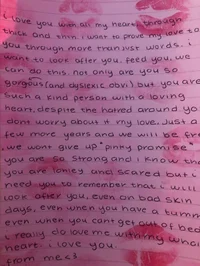 i love you with all my heart, through
thick and thin. i want to prove my love to
you through more than just words. i
want to look after you, feed you, we
can do this. not only are you so
gorgous (and dyslexic obvi) but you are
such a kind person with a loving
heart, despite the hatred around you
dont worry about it my love. Just a
few more years and we will be free
we wont give up "pinky promise"
you are so strong and i know that
you are lonley and scared but i
need you to remember that i will
look after you, even on bad skin
days, even when you have a tummy
even when you cant get out of bed
i really do love me with my whole
heart. i love you.
from me